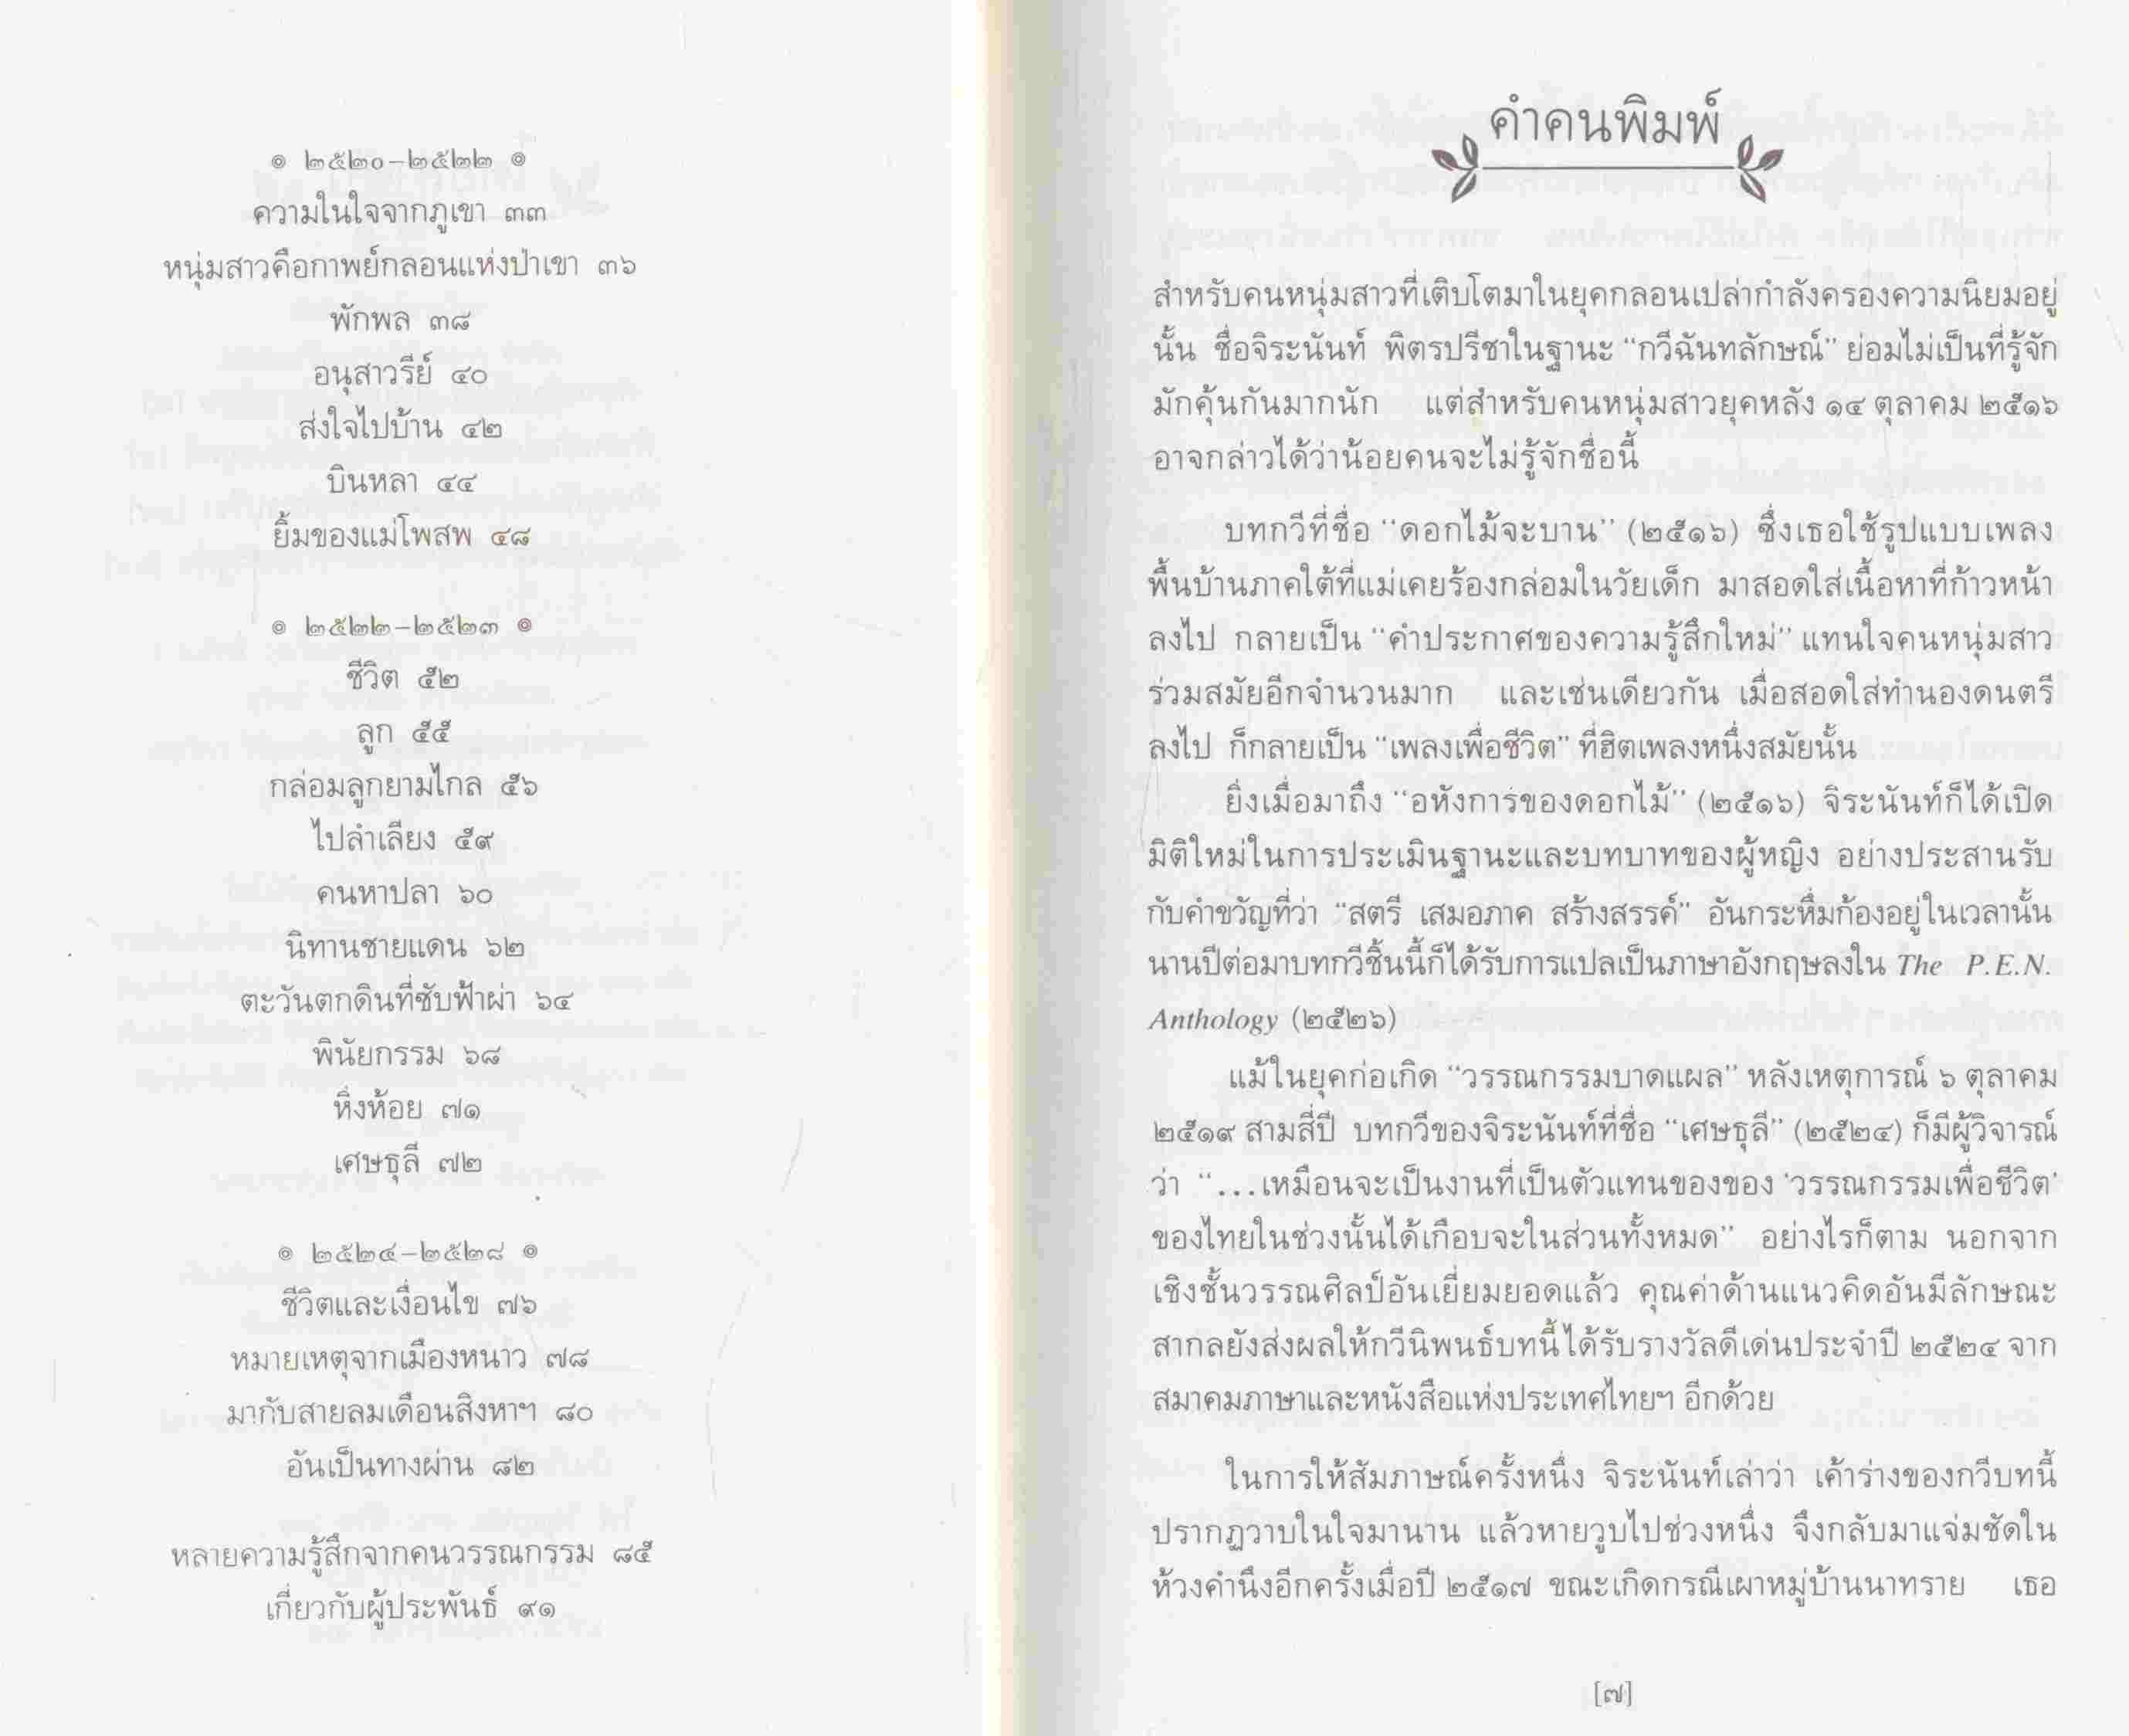 ๏ ๒๕๒๐–๒๕๒๒ ๏
ความในใจจากภูเขา ๓๓
หนุ่มสาวคือกาพย์กลอนแห่งป่าเขา ๓๖
พักพล ๓๘
อนุสาวรีย์ ๔๐
ส่งใจไปบ้าน ๔๒
บินหลา ๔๔
ยิ้มของแม่โพสพ ๔๘
๏ ๒๕๒๒–๒๕๒๓ ๏
ชีวิต ๕๒
ลูก ๕๕
กล่อมลูกยามไกล ๕๖
ไปลำเลียง ๕๙
คนหาปลา ๖๐
นิทานชายแดน ๖๒
ตะวันตกดินที่ซับฟ้าผ่า ๖๔
พินัยกรรม ๖๘
หิ่งห้อย ๗๑
เศษธุลี ๗๒
๏ ๒๕๒๔–๒๕๒๘ ๏
ชีวิตและเงื่อนไข ๗๖
หมายเหตุจากเมืองหนาว ๗๘
มากับสายลมเดือนสิงหาฯ ๘๐
อันเป็นทางผ่าน ๘๒
หลายความรู้สึกจากคนวรรณกรรม ๘๕
เกี่ยวกับผู้ประพันธ์ ๙๑
คำคนพิมพ์
สำหรับคนหนุ่มสาวที่เติบโตมาในยุคกลอนเปล่ากำลังครองความนิยมอยู่
นั้น ชื่อจิระนันท์ พิตรปรีชาในฐานะ “กวีฉันทลักษณ์” ย่อมไม่เป็นที่รู้จัก
มักคุ้นกันมากนัก แต่สำหรับคนหนุ่มสาวยุคหลัง ๑๔ ตุลาคม ๒๕๑๖
อาจกล่าวได้ว่าน้อยคนจะไม่รู้จักชื่อนี้
บทกวีที่ชื่อ “ดอกไม้จะบาน” (๒๕๑๖) ซึ่งเธอใช้รูปแบบเพลง
พื้นบ้านภาคใต้ที่แม่เคยร้องกล่อมในวัยเด็ก มาสอดใส่เนื้อหาที่ก้าวหน้า
ลงไป กลายเป็น “คำประกาศของความรู้สึกใหม่” แทนใจคนหนุ่มสาว
ร่วมสมัยอีกจำนวนมาก และเช่นเดียวกัน เมื่อสอดใส่ทำนองดนตรี
ลงไป ก็กลายเป็น “เพลงเพื่อชีวิต” ที่ฮิตเพลงหนึ่งสมัยนั้น
ยิ่งเมื่อมาถึง “อหังการของดอกไม้” (๒๕๑๖) จิระนันท์ก็ได้เปิด
มิติใหม่ในการประเมินฐานะและบทบาทของผู้หญิง อย่างประสานรับ
กับคำขวัญที่ว่า “สตรี เสมอภาค สร้างสรรค์” อันกระหึ่มก้องอยู่ในเวลานั้น
นานปีต่อมาบทกวีชิ้นนี้ก็ได้รับการแปลเป็นภาษาอังกฤษลงใน The P.E.N.
Anthology (๒๕๒๖)
แม้ในยุคก่อเกิด “วรรณกรรมบาดแผล” หลังเหตุการณ์ ๖ ตุลาคม
๒๕๑๙ สามสี่ปี บทกวีของจิระนันท์ที่ชื่อ “เศษธุลี” (๒๕๒๔) ก็มีผู้วิจารณ์
ว่า “...เหมือนจะเป็นงานที่เป็นตัวแทนของของ ‘วรรณกรรมเพื่อชีวิต’
ของไทยในช่วงนั้นได้เกือบจะในส่วนทั้งหมด” อย่างไรก็ตาม นอกจาก
เชิงชั้นวรรณศิลป์อันเยี่ยมยอดแล้ว คุณค่าด้านแนวคิดอันมีลักษณะ
สากลยังส่งผลให้กวีนิพนธ์บทนี้ได้รับรางวัลดีเด่นประจำปี ๒๕๒๔ จาก
สมาคมภาษาและหนังสือแห่งประเทศไทยฯ อีกด้วย
ในการให้สัมภาษณ์ครั้งหนึ่ง จิระนันท์เล่าว่า เค้าร่างของกวีบทนี้
ปรากฏวาบในใจมานาน แล้วหายวูบไปช่วงหนึ่ง จึงกลับมาแจ่มชัดใน
ห้วงคำนึงอีกครั้งเมื่อปี ๒๕๑๗ ขณะเกิดกรณีเผาหมู่บ้านนาทราย เธอ
[๗]